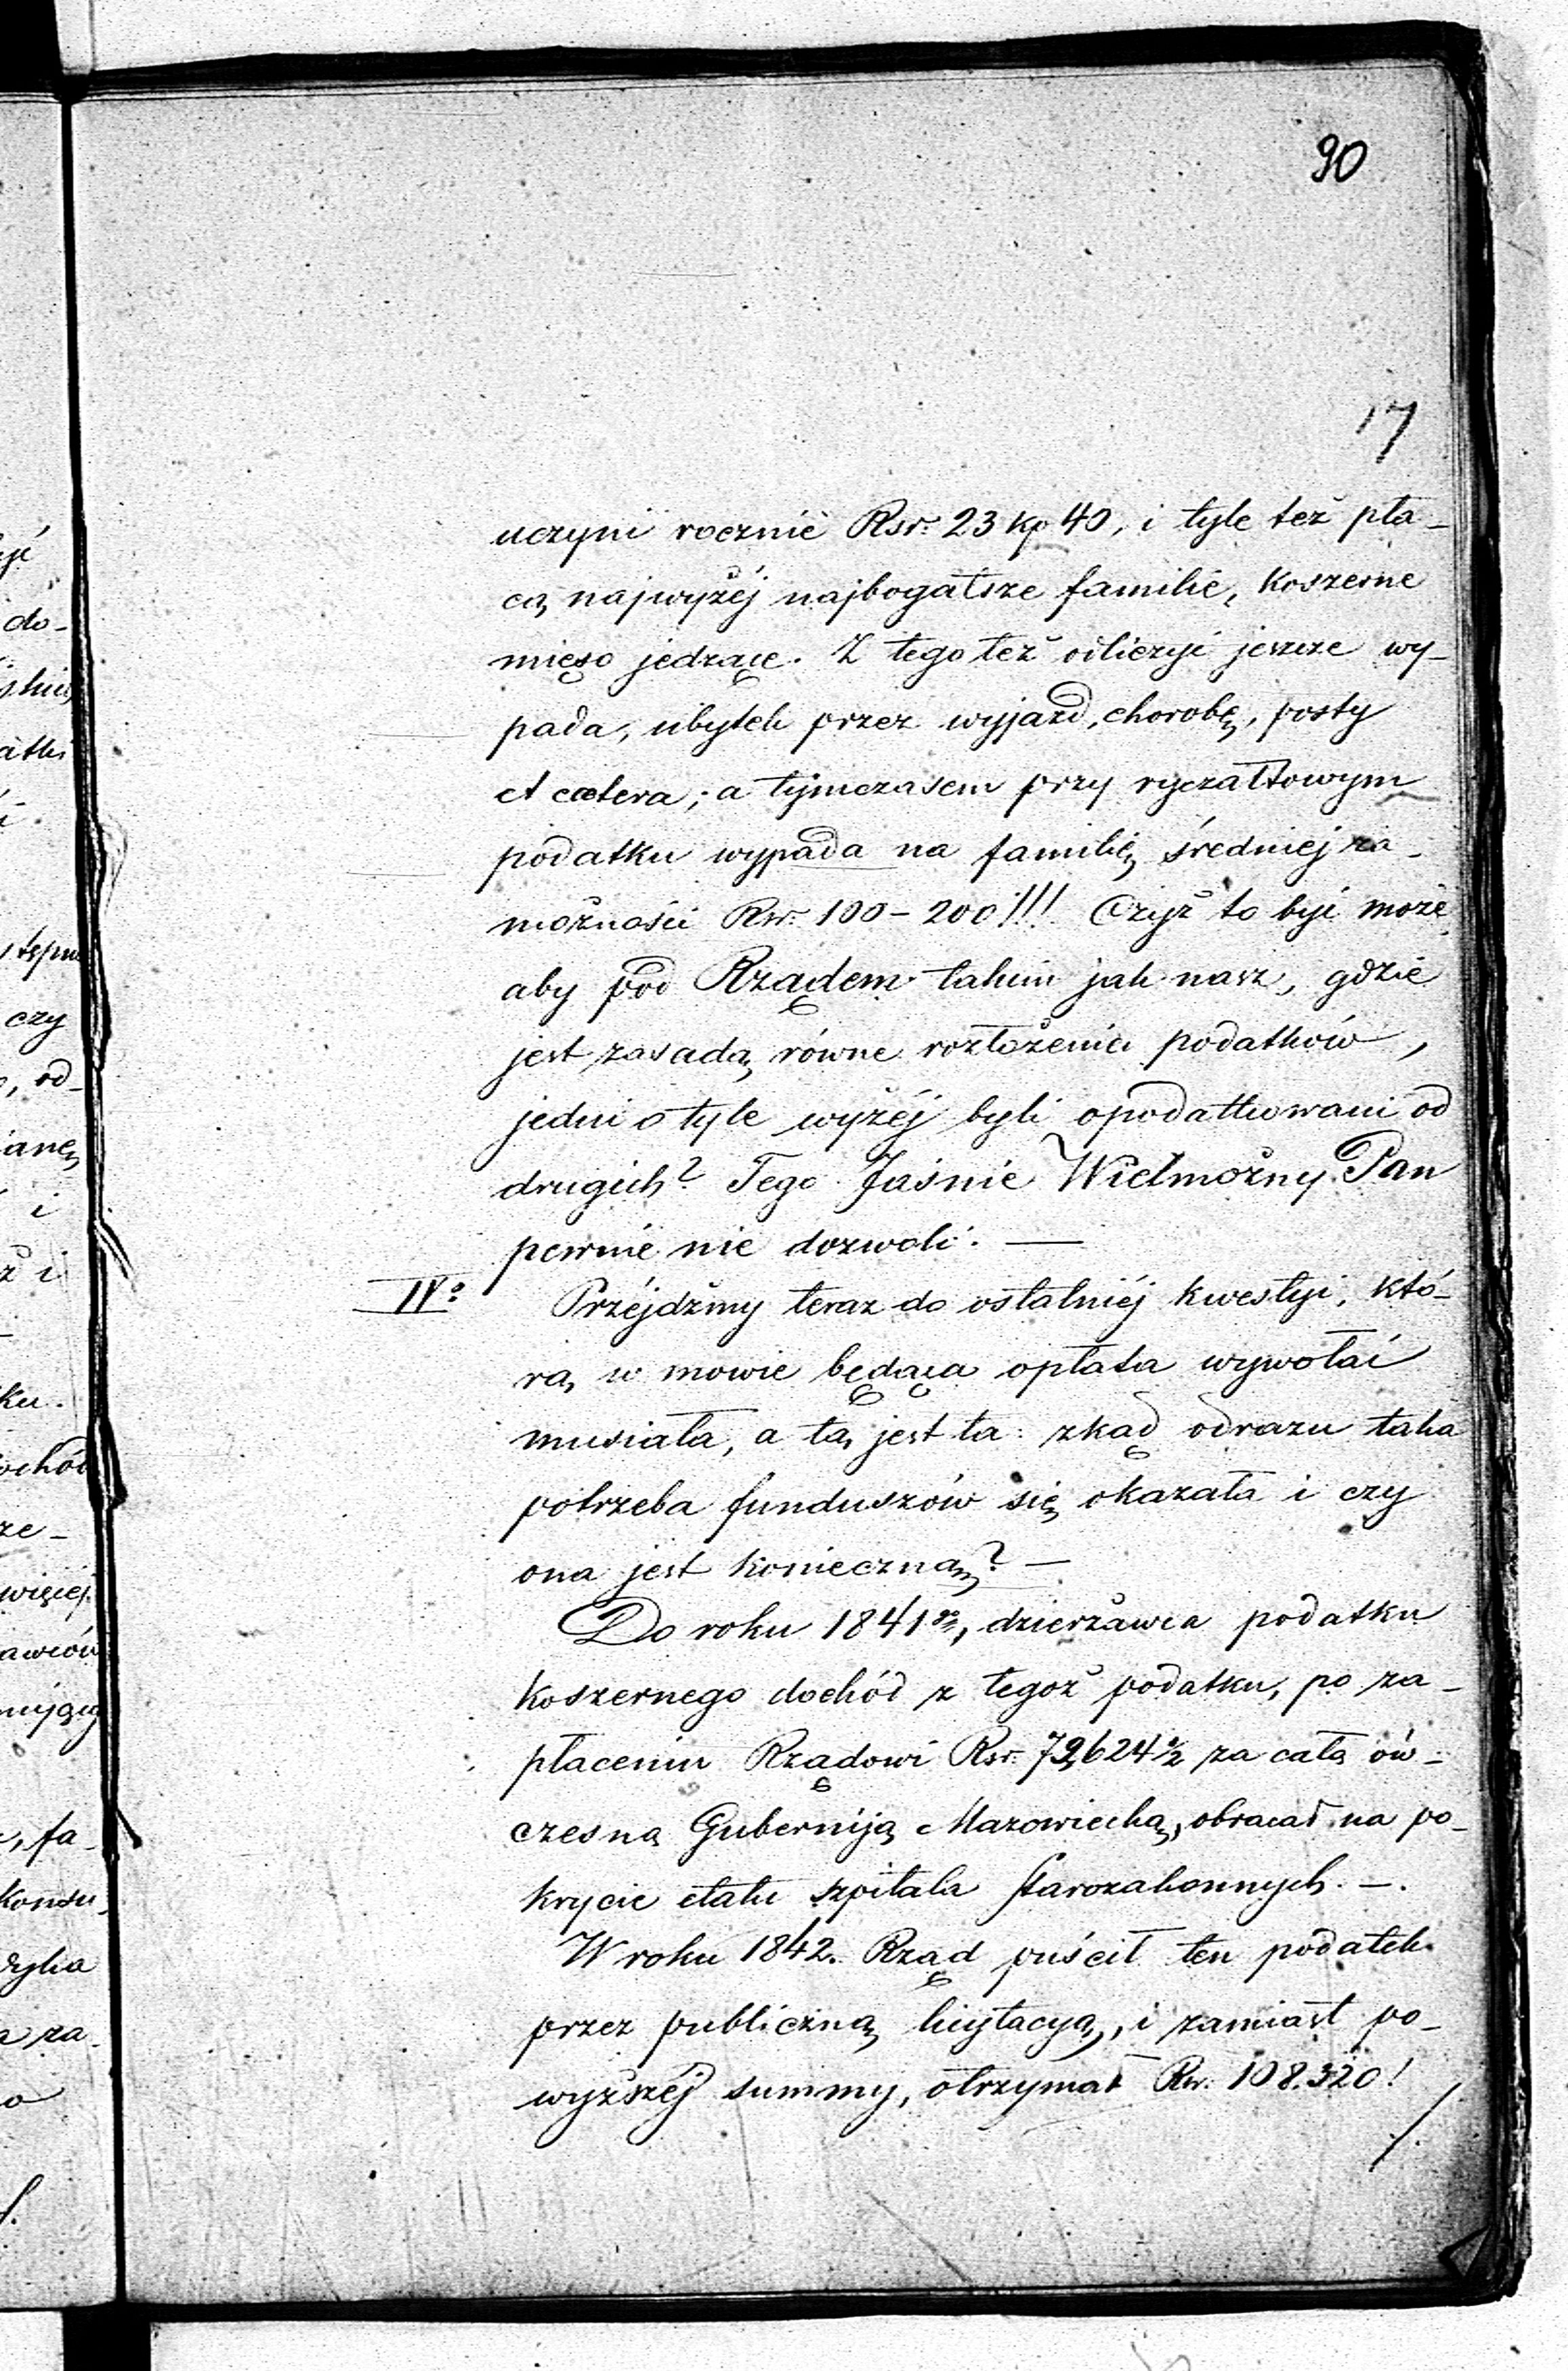 90
17
uczyni rocznie Rsr. 23 kp 40, i tyle też pła-
cą najwyżéj najbogatsze familie, koszerne
mięso jedzące. Z tego też odliczyć jeszcze wy-
pada, ubytek przez wyjazd, chorobę, posty
et cætera; a tymczasem przy ryczałtowym
podatku wypada na familię średniej za-
możności Rsr. 100-200!!! Czyż to być może
aby pod Rządem takim jak nasz, gdzie
jest zasadą równe rozłożenie podatków,
jedni o tyle wyżéj byli opodatkowani od
drugich? Tego Jaśnie Wielmożny Pan
pewnie nie dozwoli. —
IVº Przéjdźmy teraz do ostatniéj kwestyi, któ-
rą w mowie będąca opłata wywołać
musiała, a tą jest ta: zkąd odrazu taka
potrzeba funduszów się okazała i czy
ona jest konieczną? —
Do roku 1841go, dzierżawca podatku
koszernego dochód z tegoż podatku, po za-
płaceniu Rządowi Rsr. 72,624½ za całą ów-
czesną Guberniją Mazowiecką, obracał na po-
krycie etatu szpitala Starozakonnych. —.
W roku 1842. Rząd puścił ten podatek
przez publiczną licytacyą, i zamiast po-
wyższéj summy, otrzymał Rsr. 108.320!